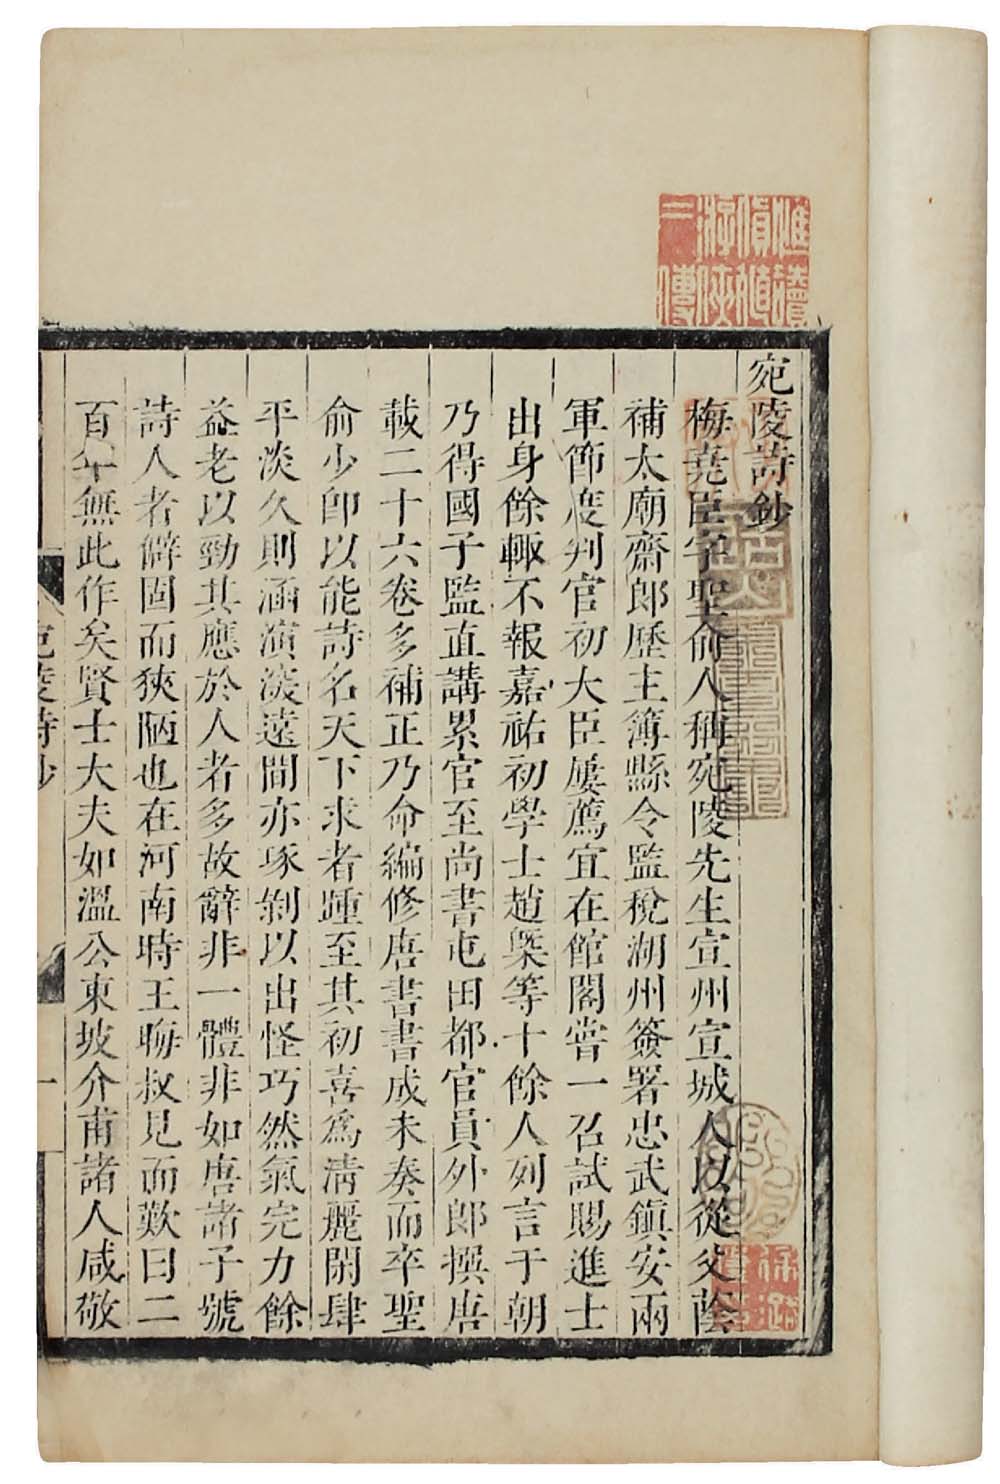 宛陵詩鈔
梅堯臣字聖俞人稱宛陵先生宣州宣城人以從父蔭
補太廟齋郎歷主簿縣令監稅湖州簽署忠武鎮安兩
軍節度判官初大臣屢薦宜在館閣嘗一召試賜進士
出身餘輙不報嘉祐初學士趙槩等十餘人列言于朝
乃得國子監直講累官至尚書屯田都官員外郎撰唐
載二十六卷多補正乃命編修唐書書成未奏而卒聖
俞少卽以能詩名天下求者踵至其初喜爲淸麗閑肆
平淡久則涵演深遠間亦琢剝以出怪巧然氣完力餘
益老以勁其應於人者多故辭非一體非如唐諸子號
詩人者僻固而狹陋也在河南時王晦叔見而歎曰二
百年無此作矣賢士大夫如溫公東坡介甫諸人咸敬
宛陵詩鈔
一